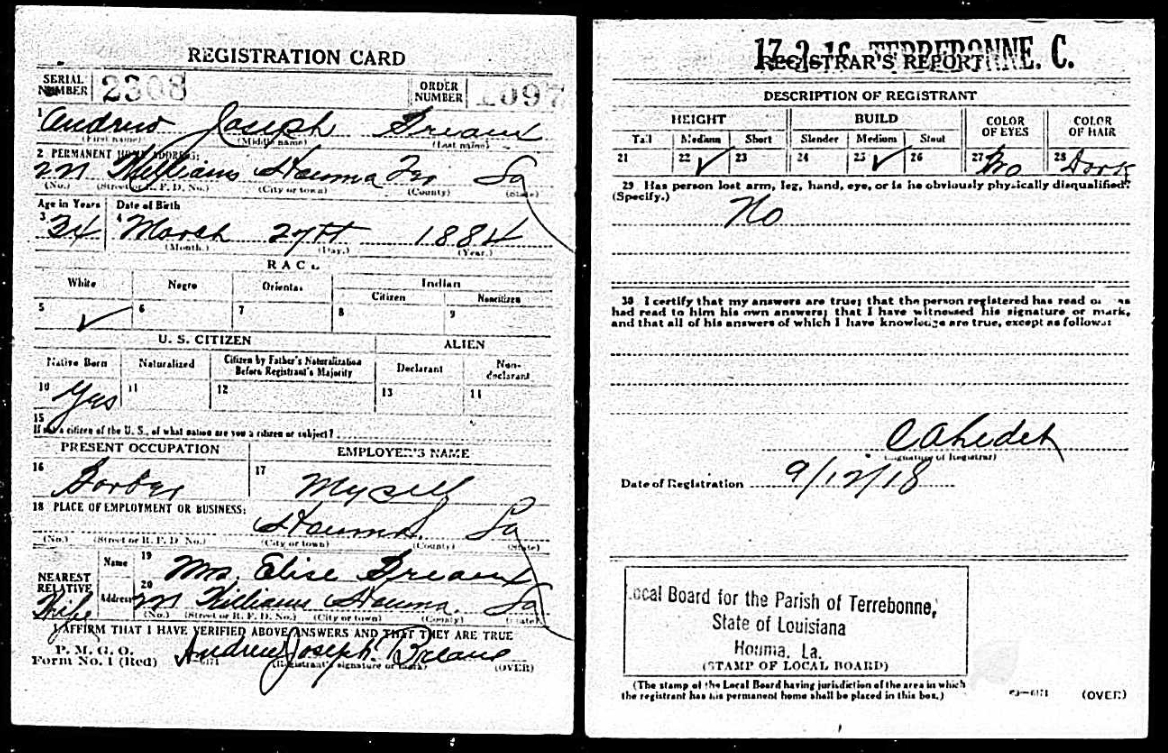 REGISTRATION CARD
SERIAL NUMBER 2308 ORDER NUMBER 1097
1 Andrew Joseph Breaux
(First name) (Middle name) (Last name)
2 PERMANENT HOME ADDRESS:
Williams Houma Ter La
(No.) (Street or R. F. D. No.) (City or town) (County) (State)
Age in Years Date of Birth
3 34 4 March 27th 1884
(Month.) (Day.) (Year.)
RACE
White Negro Oriental Indian
Citizen Noncitizen
5 ✓ 6 7 8 9
U. S. CITIZEN ALIEN
Native Born Naturalized Citizen by Father's Naturalization Before Registrant's Majority Declarant Non-declarant
10 Yes 11 12 13 14
15
If not a citizen of the U. S., of what nation are you a citizen or subject?
PRESENT OCCUPATION EMPLOYER'S NAME
16 Barber 17 Myself
18 PLACE OF EMPLOYMENT OR BUSINESS:
Houma La
(No.) (Street or R. F. D. No.) (City or town) (County) (State)
NEAREST RELATIVE Name 19 Mrs Elise Breaux
Wife Address 20 Williams Houma La
(No.) (Street or R. F. D. No.) (City or town) (County) (State)
I AFFIRM THAT I HAVE VERIFIED ABOVE ANSWERS AND THAT THEY ARE TRUE
P. M. G. O.
Form No. 1 (Red) Andrew Joseph Breaux
(Registrant's signature or mark) (OVER)
17-2-16 TERREBONNE. C.
REGISTRAR'S REPORT
DESCRIPTION OF REGISTRANT
HEIGHT BUILD COLOR OF EYES COLOR OF HAIR
Tall Medium Short Slender Medium Stout
21 22 ✓ 23 24 25 ✓ 26 27 Bro 28 Dark
29 Has person lost arm, leg, hand, eye, or is he obviously physically disqualified?
(Specify.)
No
30 I certify that my answers are true; that the person registered has read or has
had read to him his own answers; that I have witnessed his signature or mark,
and that all of his answers of which I have knowledge are true, except as follows:
C A Ledet
(Signature of Registrar)
Date of Registration 9/12/18
Local Board for the Parish of Terrebonne,
State of Louisiana
Houma, La.
(STAMP OF LOCAL BOARD)
(The stamp of the Local Board having jurisdiction of the area in which
the registrant has his permanent home shall be placed in this box.)
(OVER)